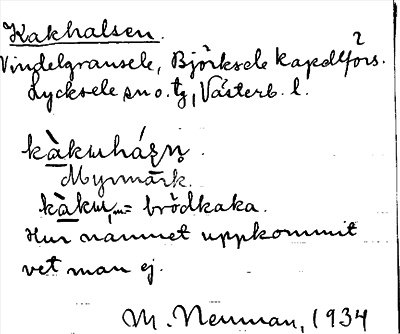 Kakhalsen.
Vindelgransele, Björksele kapellförs.
Lycksele sn o. tg, Västerb. l.
Myrmark.
kàku, = brödkaka.
Hur namnet uppkommit
vet man ej.
M. Neuman, 1934